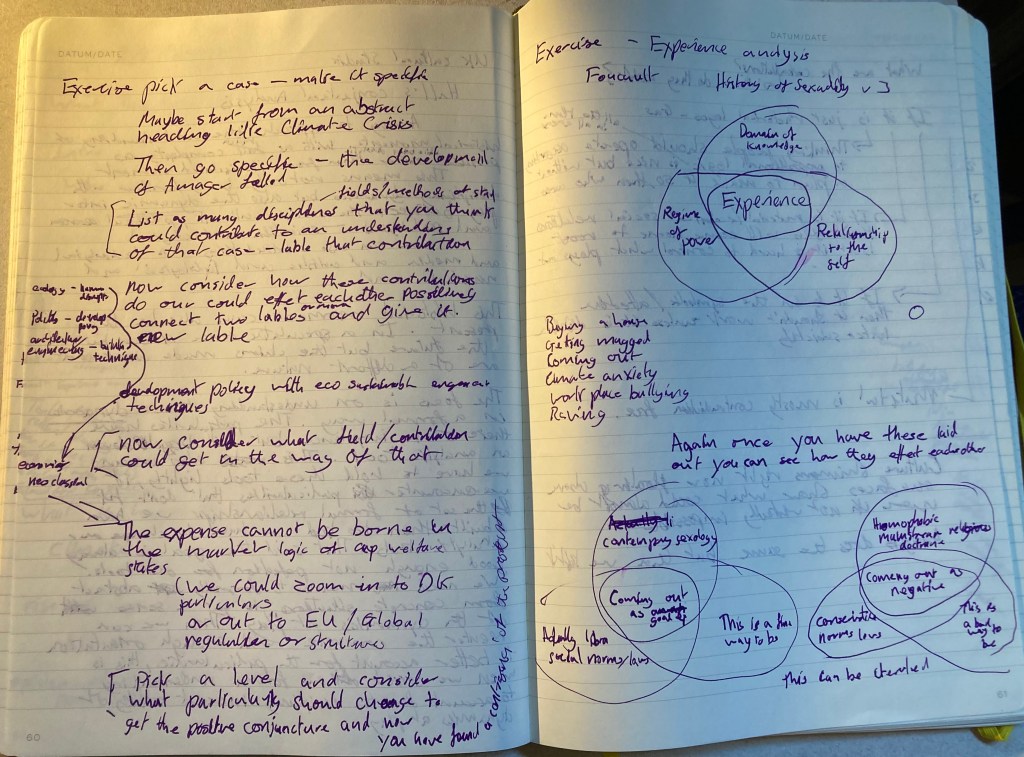 DATUM/DATE
Exercise pick a case – make it specific
Maybe start from an abstract
heading like Climate Crisis
Then go specific – the development
of Amager fælled
fields/methods of study
List as many disciplines that you think
could contribute to an understanding
of that case – lable that contribution
ecology – human
disrupt
Politics – develop
policy
architecture
engineering – building
technique
now consider how these contributions
do our could effet eachother possitively
connect two lables and give it
new lable
development policy with eco sustainable
techniques
now consider what field/contribution
could get in the way of that
economics
neoclassical
The expense cannot be borne in
the market logic of cap welfare
states
(we could zoom in to DK
particulars
or out to EU/Global
regulation or structures
Pick a level and consider
what particularity should change to
get the positive conjuncture and now
you have found
a contextual of the problem
60
DATUM/DATE
Exercise – Experience analysis
Foucault History of Sexuality
Domain of
knowledge
Experience
Regime
of
power
Relationship
to the
self
Buying a house
Getting mugged
Coming out
Climate anxiety
work place bullying
Raving
Again once you have these laid
out you can see how they effect eachother
contemporary sexology
Coming out
as
good
This is a
way to be
Actually
social norms/laws
Homophobic
mainstream religious
doctrine
Coming out as
negative
conservative
norms laws
This is
a bad
way to
be
This can be
61